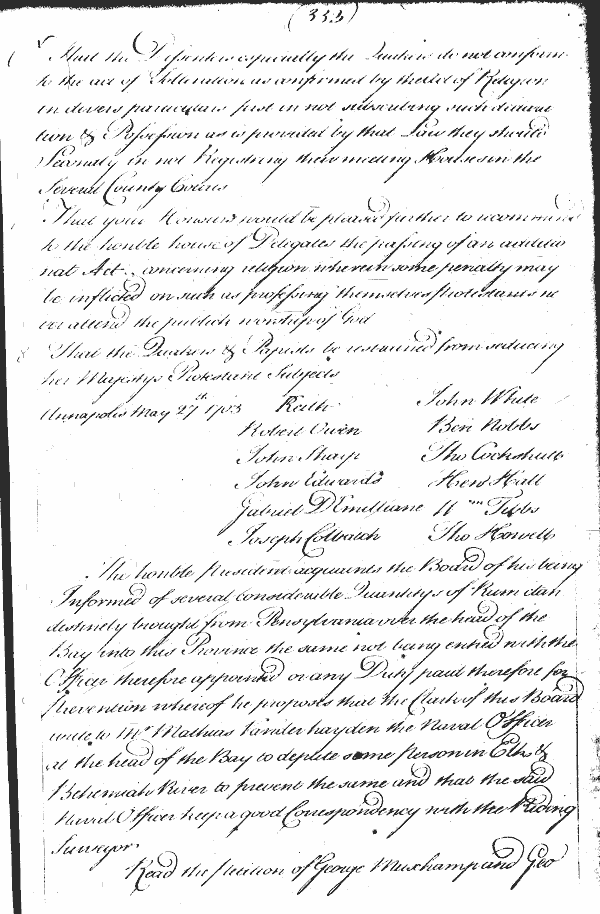 (353)
That the Dissenters especially the Quakers do not conform
to the act of Tolleration as confirmed by the Act of Religion
in divers particulars first in not subscribing such declara
tion & Possession as is provided by that Law they should
Secondly in not Registring there meeting Houses in the
Several County Courts
That your Honours would be pleased further to recommend
to the honble house of Deligates the passing of an additio
nal Act concerning religion wherein some penalty may
be inflicted on such as professing themselves protestants ne
ver attend the publick worship of God
That the Quakers & Papists be restrained from seducing
her Majestys Protestant Subjects
Annapolis May 27th 1703 Keith John White
Robert Owen Ben Nobbs
John Sharp Tho Cockshutt
John Edwards Hen Hall
Gabriel D'Emilliane Wm Tibbs
Joseph Colbatch Tho Howell
The honble President acquaints the Board of his being
Informed of several considerable Quantitys of Rum clan
destinely brought from Pensylvania over the head of the
Bay into this Province the same not being entred with the
Officer therefore appointed or any Duty paid therefore for
Prevention whereof he proposes that the Clerk of this Board
write to Mr Mathias Vanderhayden the Naval Officer
at the head of the Bay to depute some person in Elk &
Bohemiah River to prevent the same and that the said
Naval Officer keep a good Correspondency with the Riding
Surveyor
Read the Petition of George Muschamp and Geo